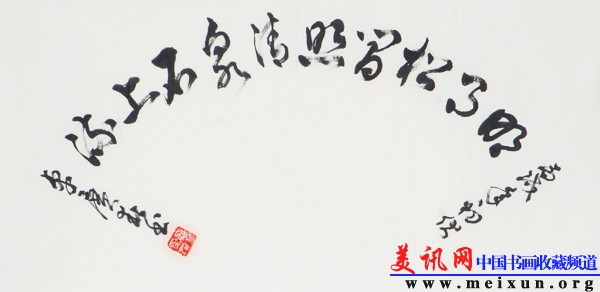 明月松間照清泉石上流
美讯网 中国书画收藏频道
www.meixun.org